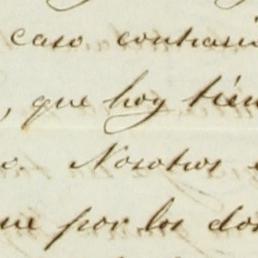 caso contrari
, que hoy tien
o. Nosotros
ue por los dos